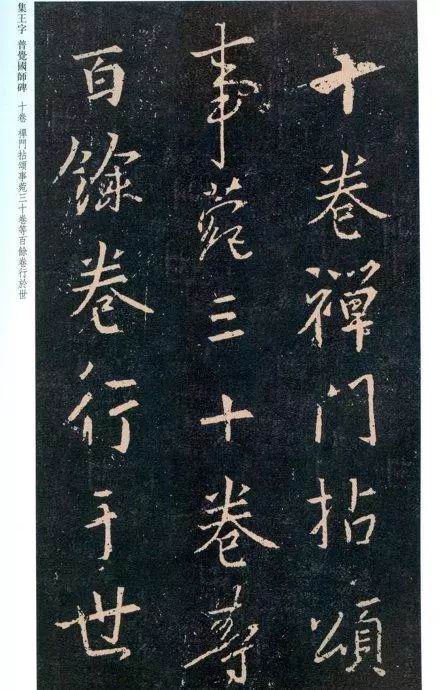 十卷禪門拈頌
事苑三十卷等
百餘卷行于世
集王字 普覺國師碑 十卷 禪門拈頌事苑三十卷等百餘卷行於世